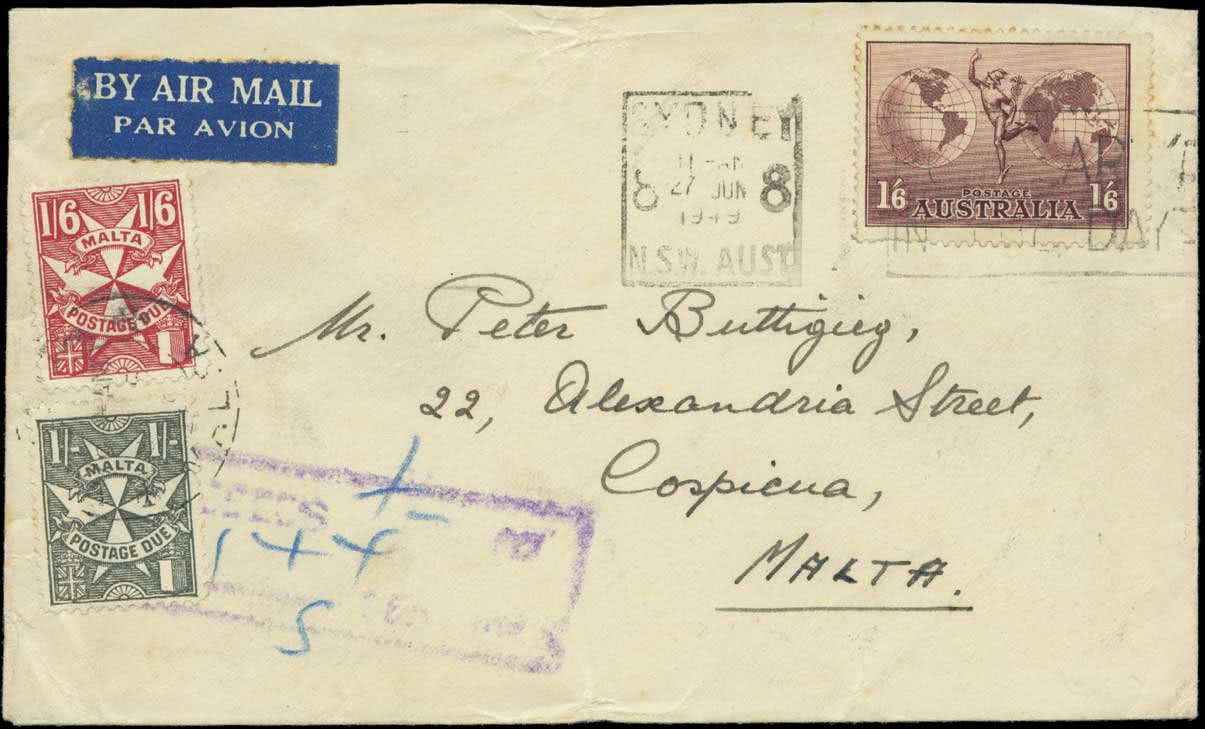 BY AIR MAIL
PAR AVION
SYDNEY
11-AM
8 27 JUN 8
1949
N.S.W. AUST
1/6 POSTAGE 1/6
AUSTRALIA
IN DAY
1/6 1/6
MALTA
POSTAGE DUE
Mr. Peter Buttigieg,
22, Alexandria Street,
Cospicua,
MALTA.
1/- 1/-
MALTA
POSTAGE DUE
144